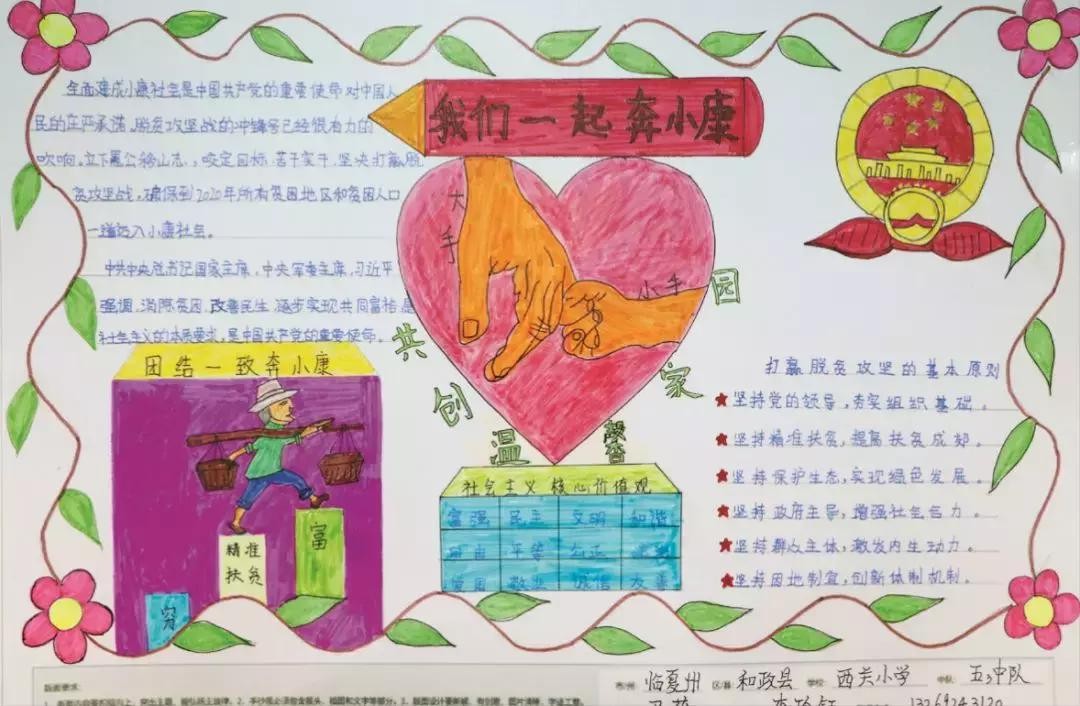 我们一起奔小康
全面建成小康社会是中国共产党的重要使命对中国人
民的庄严承诺,脱贫攻坚战的冲锋号已经很有力的
吹响。立下愚公移山志,咬定目标、苦干实干,坚决打赢脱
贫攻坚战,确保到2020年所有贫困地区和贫困人口
一道迈入小康社会。
中共中央总书记国家主席,中央军委主席,习近平
强调,消除贫困、改善民生、逐步实现共同富裕,是
社会主义的本质要求,是中国共产党的重要使命。
大手
小手
共创温馨家园
团结一致奔小康
穷
精准
扶贫
富
社会主义核心价值观
富强 民主 文明 和谐
自由 平等 公正 法治
爱国 敬业 诚信 友善
打赢脱贫攻坚的基本原则
坚持党的领导,夯实组织基础。
坚持精准扶贫,提高扶贫成效。
坚持保护生态,实现绿色发展。
坚持政府主导,增强社会合力。
坚持群众主体,激发内生动力。
坚持因地制宜,创新体制机制。
版面要求:
市州: 临夏州 区县: 和政县 学校: 西关小学 中队: 五3中队